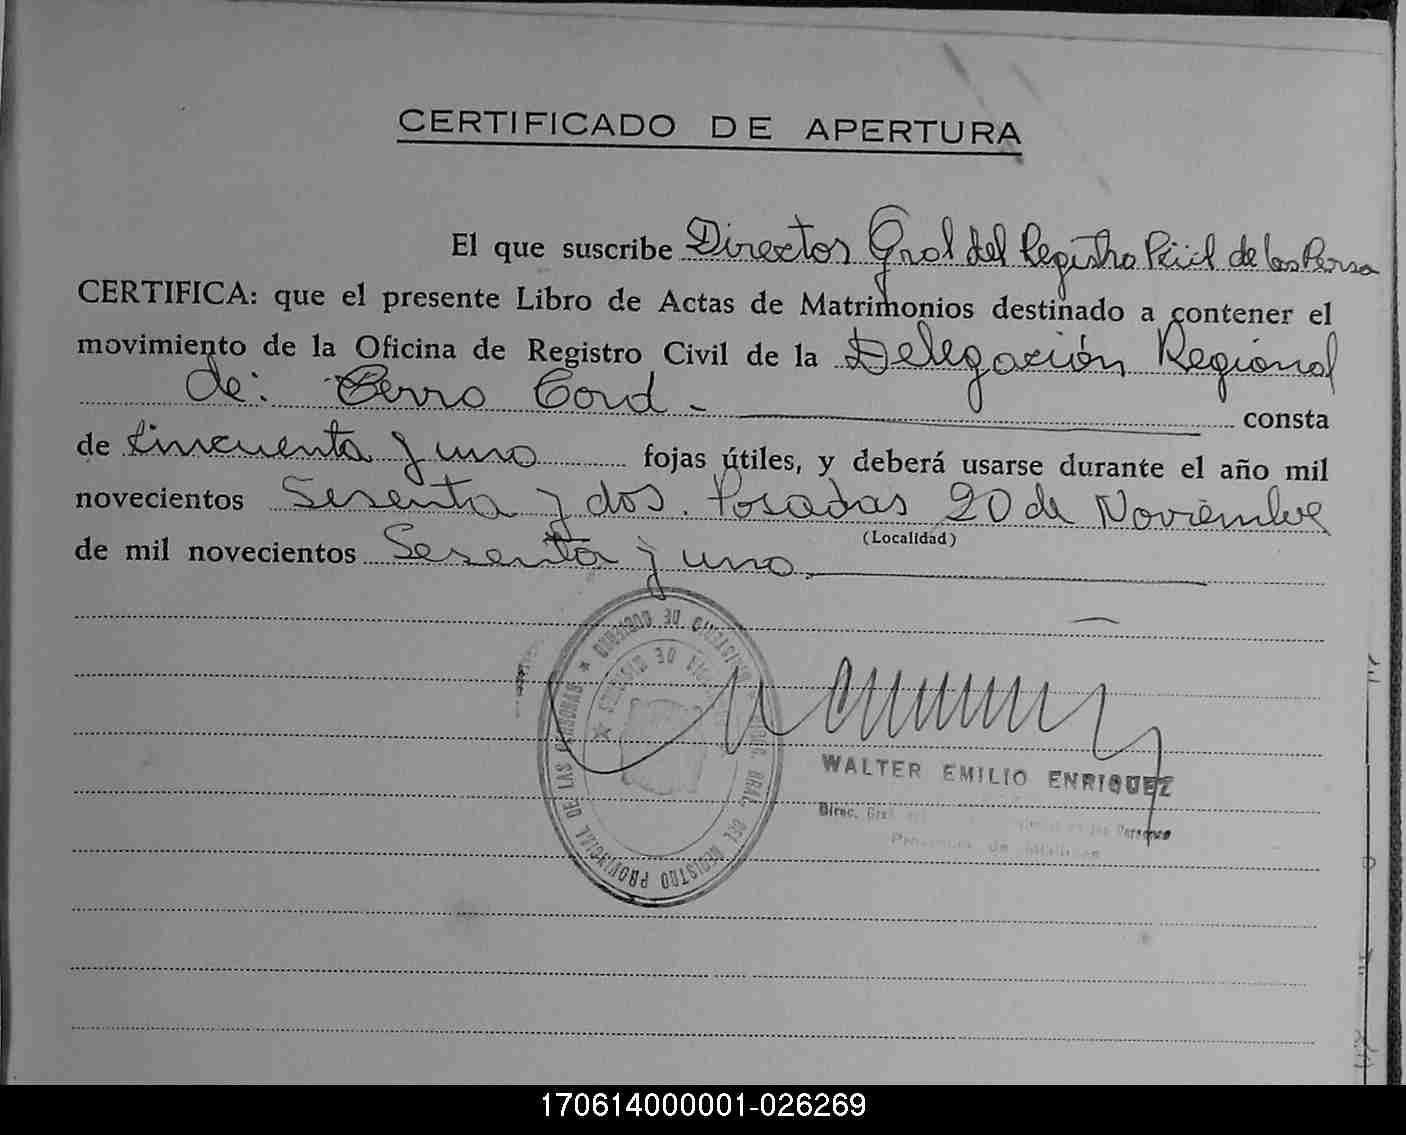 CERTIFICADO DE APERTURA
El que suscribe Director Gral del Registro Pcial de las Persa
CERTIFICA: que el presente Libro de Actas de Matrimonios destinado a contener el
movimiento de la Oficina de Registro Civil de la Delegación Regional
de: Cerro Corá - consta
de Cincuenta y uno fojas útiles, y deberá usarse durante el año mil
novecientos Sesenta y dos. Posadas 20 de Noviembre
(Localidad)
de mil novecientos Sesenta y uno.
MINISTERIO DE GOBIERNO * DIREC. GRAL. DEL REGISTRO PROVINCIAL DE LAS PERSONAS *
DE MISIONES
WALTER EMILIO ENRIQUEZ
Direc. Gral de las Personas
Provincia de Misiones
170614000001-026269